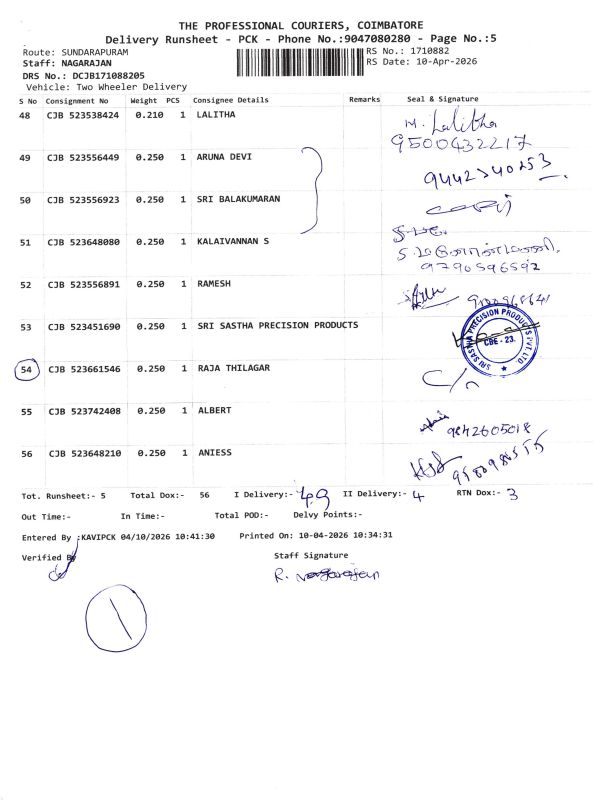 THE PROFESSIONAL COURIERS, COIMBATORE
Delivery Runsheet - PCK - Phone No.:9047080280 - Page No.:5
Route: SUNDARAPURAM RS No.: 1710882
Staff: NAGARAJAN RS Date: 10-Apr-2026
DRS No.: DCJB171088205
Vehicle: Two Wheeler Delivery
S No Consignment No Weight PCS Consignee Details Remarks Seal & Signature
48 CJB 523538424 0.210 1 LALITHA M. Lalitha
9500432217
49 CJB 523556449 0.250 1 ARUNA DEVI
50 CJB 523556923 0.250 1 SRI BALAKUMARAN
51 CJB 523648080 0.250 1 KALAIVANNAN S
9790596592
52 CJB 523556891 0.250 1 RAMESH
53 CJB 523451690 0.250 1 SRI SASTHA PRECISION PRODUCTS
SRI SASTHA PRECISION PRODUCTS PVT. LTD.
CBE - 23.
54 CJB 523661546 0.250 1 RAJA THILAGAR
55 CJB 523742408 0.250 1 ALBERT
9842605018
56 CJB 523648210 0.250 1 ANIESS
Tot. Runsheet:- 5 Total Dox:- 56 I Delivery:- 49 II Delivery:- 4 RTN Dox:- 3
Out Time:- In Time:- Total POD:- Delvy Points:-
Entered By :KAVIPCK 04/10/2026 10:41:30 Printed On: 10-04-2026 10:34:31
Verified By Staff Signature
R. Nagarajan